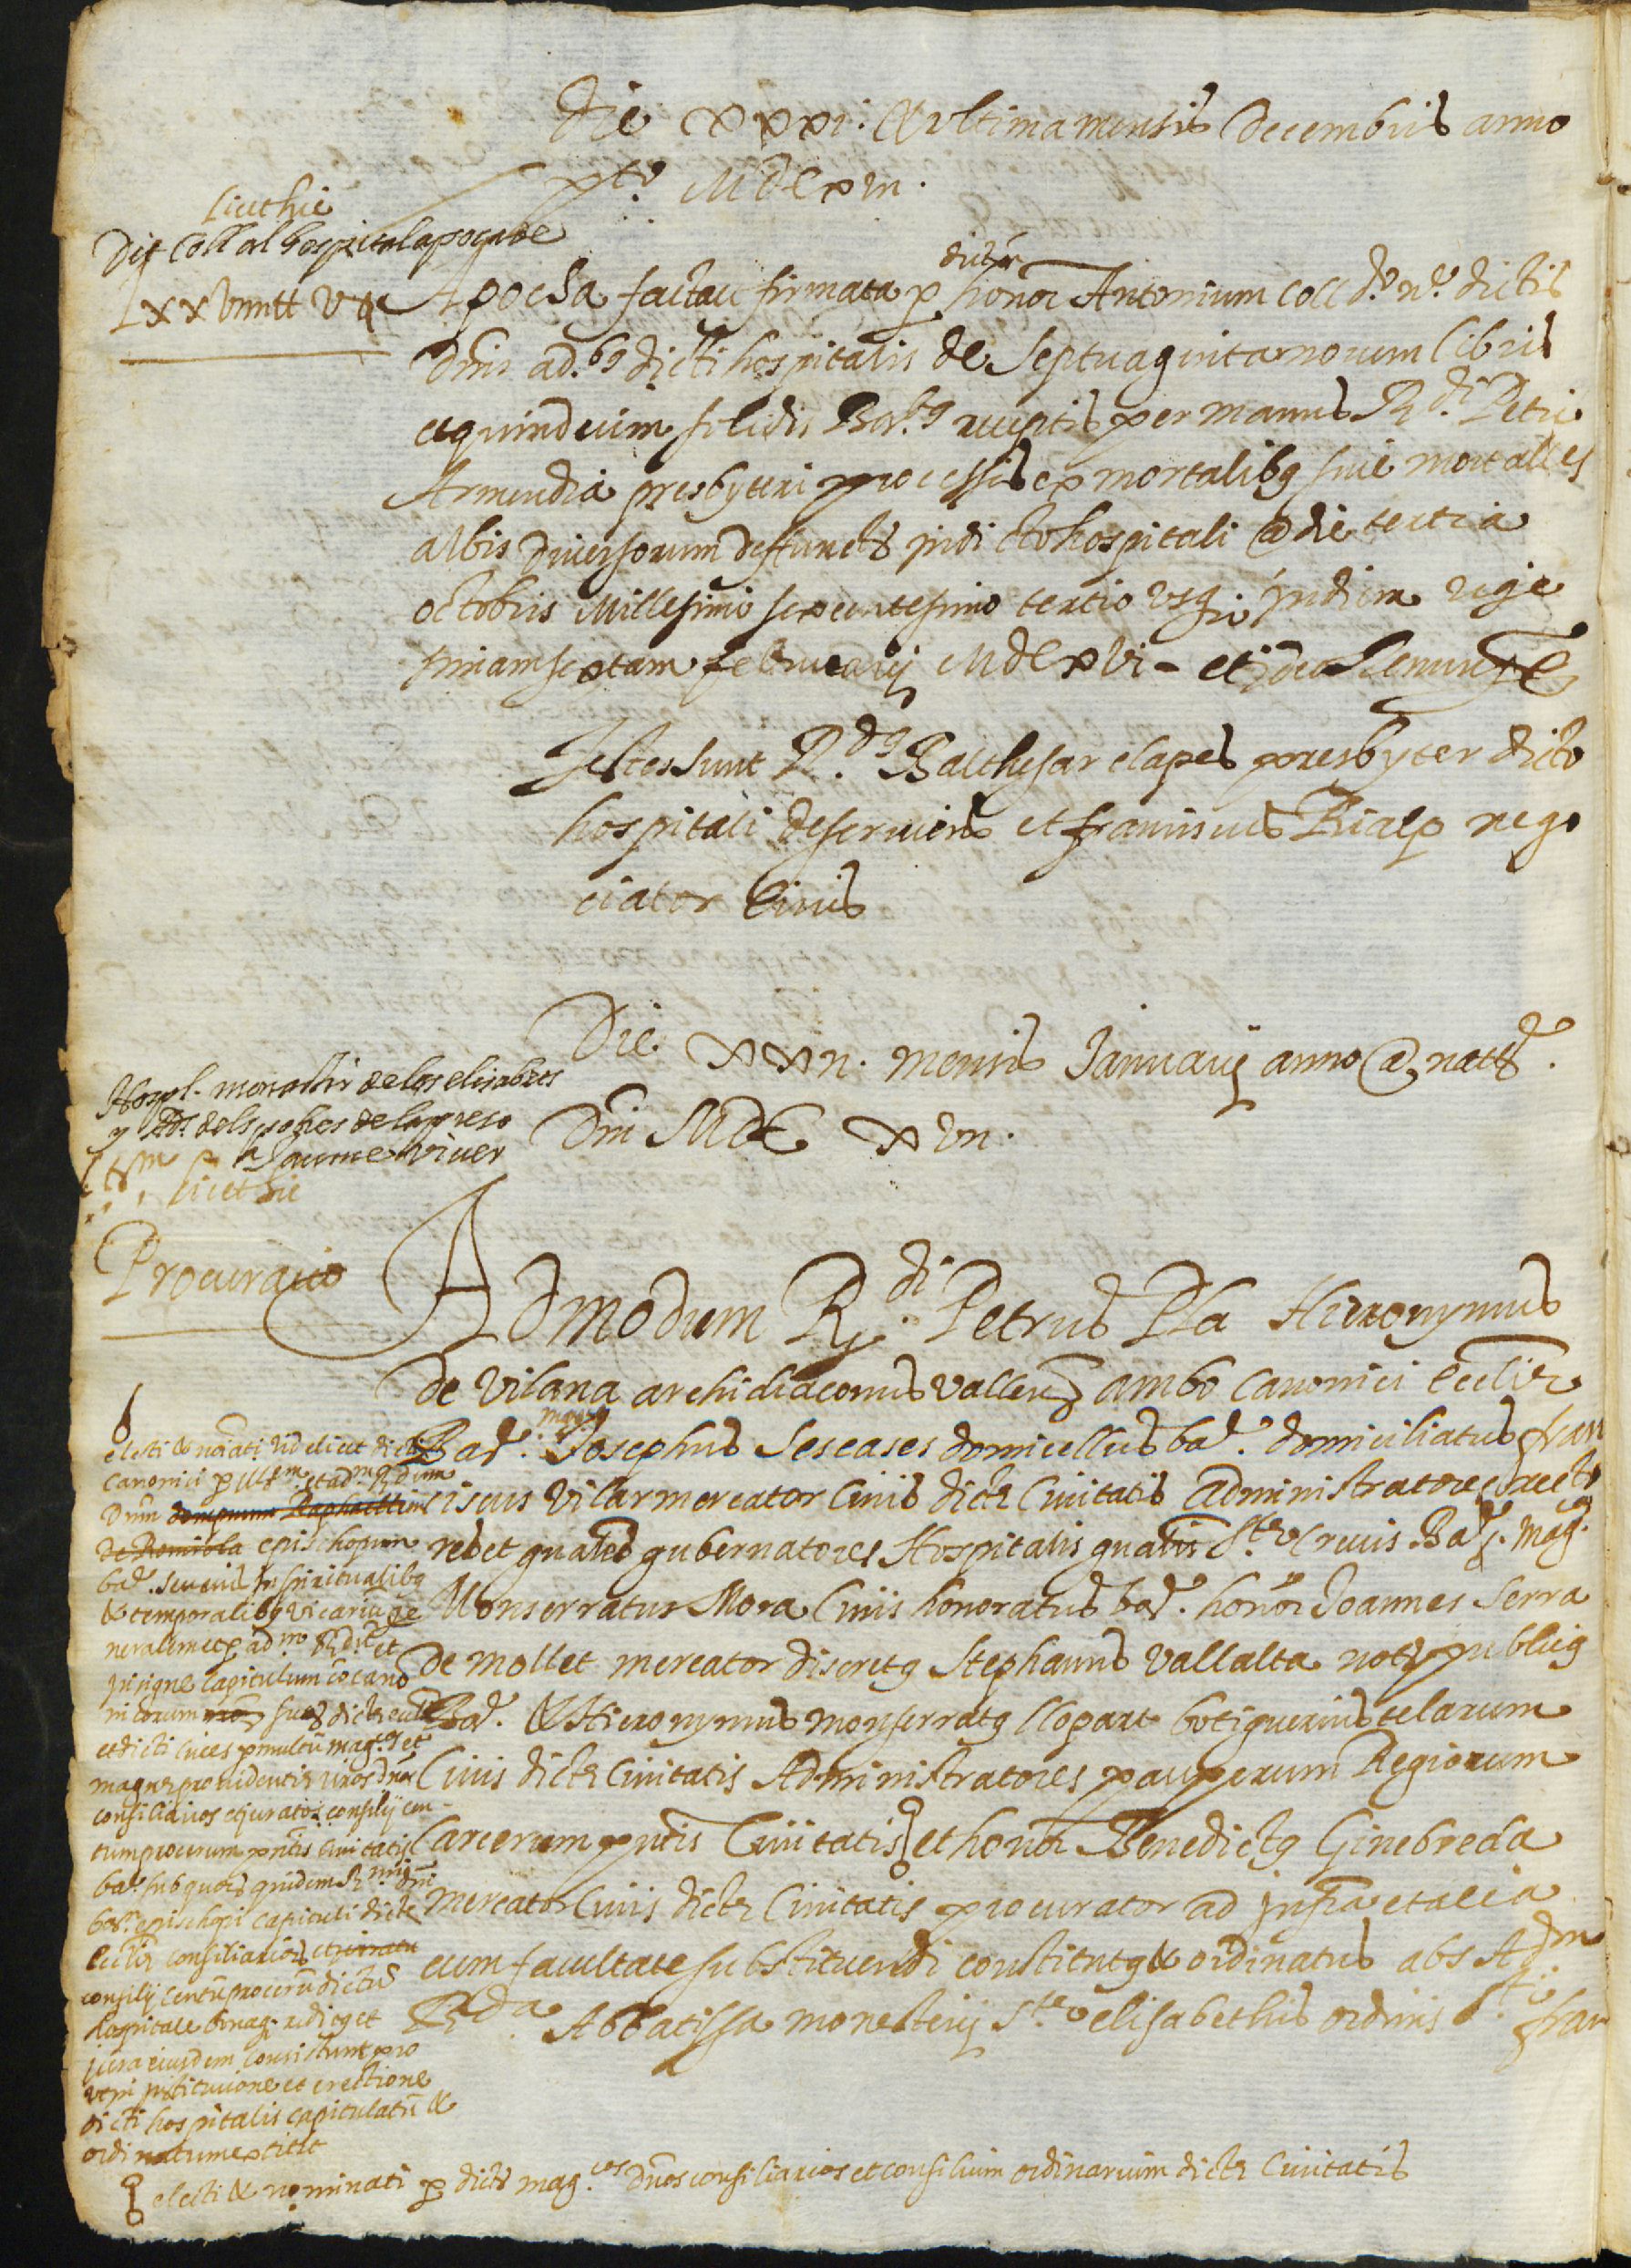 Die xxxi. & ultima mensis Decembris anno
pto. MDCxvi.
Licet hic
Dit Coll al hospital apoca de
Lxxviiii ll xv
Apocha facta et firmata p honor Antonium Coll d.º n.º dictis
discr
Dnis ad.bq dicti hospitalis de septuaginta novem libris
et quindecim solidis Bar. receptis per manus R.di Petri
Armendia presbyteri processis ex mortalibq sive mortalles
albis diversorum deffunct in dicto hospitali @ die tertia
octobris Millesimi sexcentesimo tertio usq in diem vige
simam sextam februarij MDCxvi - et ideo Renun &
Testes sunt R.dq Balthesar clapes presbyter dicto
hospitali deserviens et franciscus Rialp nego
ciator Civis
Die xxii. mensis Januarij anno @ natt.
Dni MDC xvii.
Hospl. monastir de les elisabets
y Adr dels pobres de la preso
a Jaume Viver
licet hic
Procuracio
Admodum R.di Petrus Pla Hieronymus
de Vilana archidiaconus vallen ambo Canonici Ecclie
mag.
Bar. Josephus Seseases domicellus bar. domiciliatus fran
ciscus Vilar mercator Civis dicte Civitatis Administratores recto
res et gnales gubernatores Hospitalis gnalis S.te Crucis Bar. Mag.
Monserratus Mora Civis honoratus bar. honor Joannes Serra
de mollet mercator discretq Stephanus Vallalta not publicq
Bar. & Hieronymus monserratq llopart botiguerius telarum
Civis dicte Civitatis Administratores pauperum Regiorum
Carcerum pntis Civitatis et honor Benedictq Ginebreda
Mercator Civis dicte Civitatis procurator ad infra et alia
cum facultate substituendi constitutq & ordinatus abs Ad.m
R.da Abbatissa monesterij S.te elisabethis ordinis S.ti fran
electi & noiati videlicet dicti
Canonici p Ill.m et ad.m R.dum
Dnm dompnum Raphaellem
de Romiola epischopum
bar. seu eius in spiritualibq
& temporalibq vicariu ge
neralem et p ad.m R.dt et
insigne Capitulum & cano
nicorum dicte eccl
et dicti Cives p multu mag. et
magne providentie viros dnos
consiliarios et juratos consilij cen-
tum procerum pntis Civitatis
bar. sub quors quidem R.mi dni
bar. epischopi Capituli dicte
Ecclie consiliarios et jurats
consilij Centu proceru dictu
hospitale
jura eiusdem consistunt pro
ut in institucione et erectione
dicti hospitalis capitulatu &
ordinatum extitit
electi & nominati p dict mag.cos Dnos consiliarios et consilium ordinarium dicte Civitatis